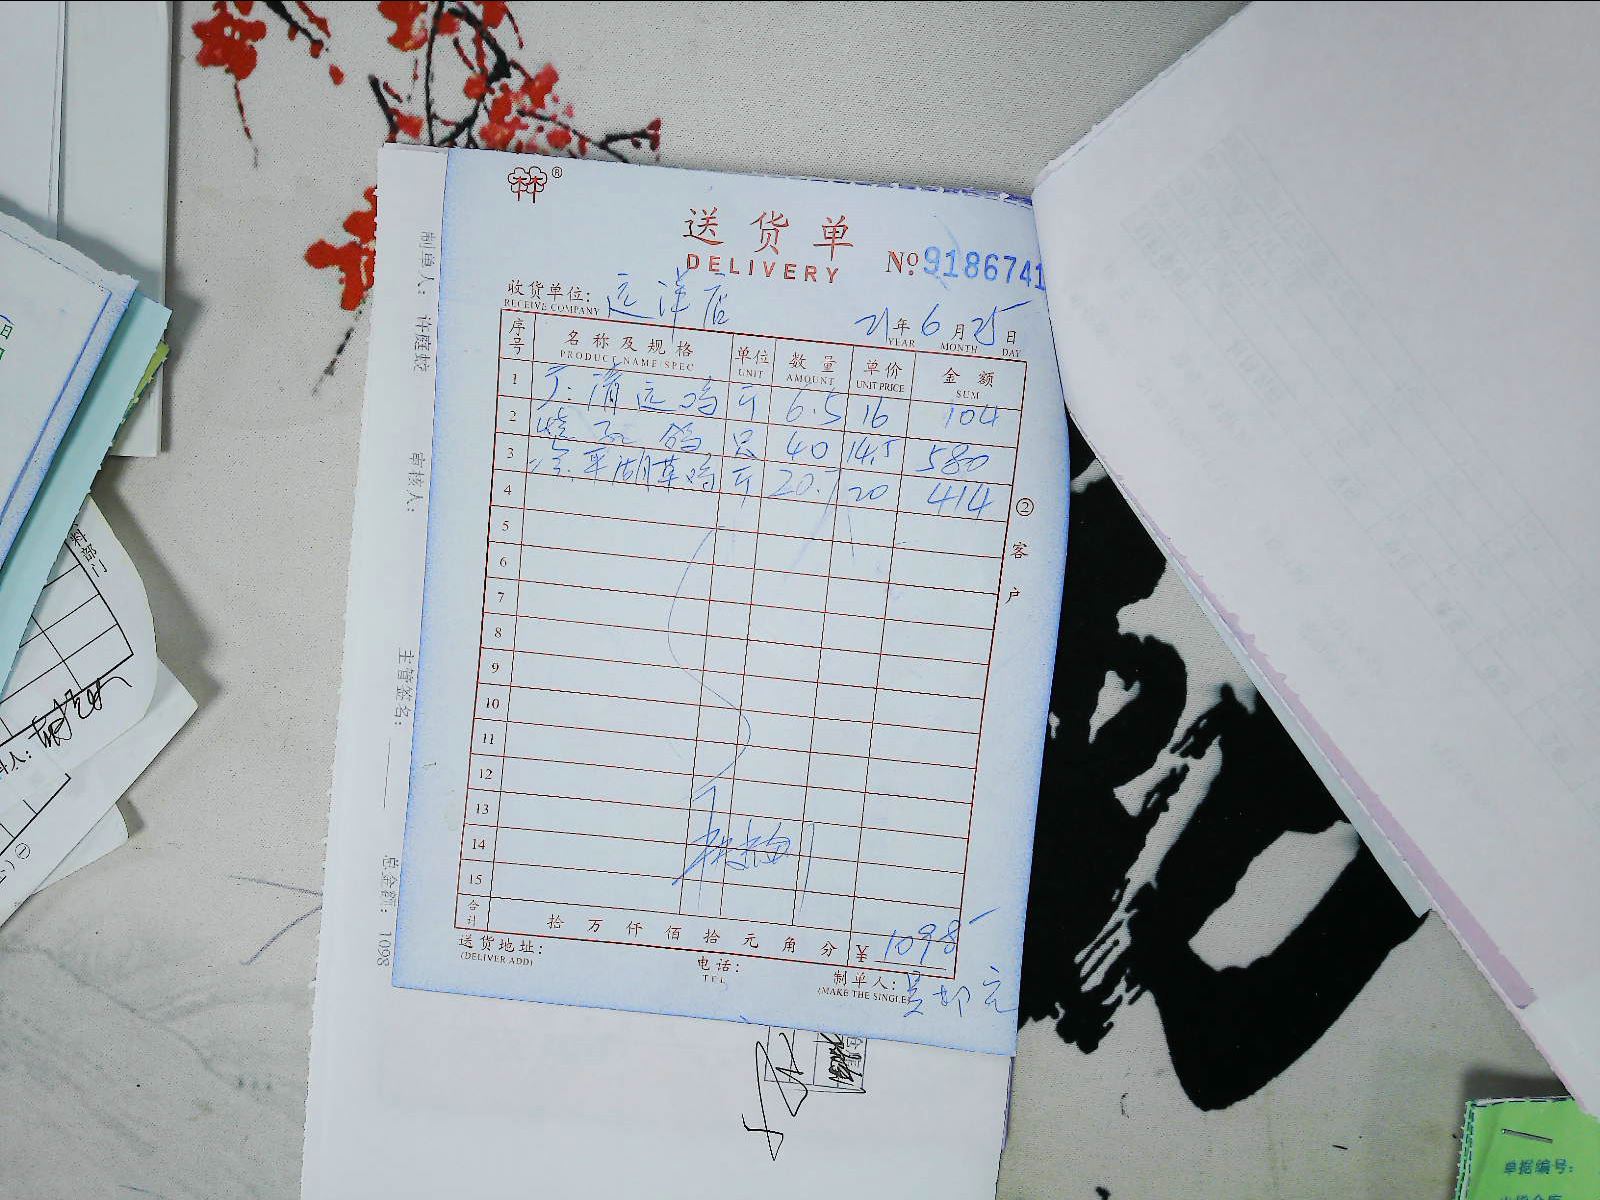 ®
送货单
DELIVERY
№ 9186741
收货单位: 远洋店
RECEIVE COMPANY
21年6月25日
YEAR MONTH DAY
序号 名称及规格 单位 数量 单价 金额
PRODUCT NAME/SPEC UNIT AMOUNT UNIT PRICE SUM
1 清远鸡 斤 6.5 16 104
2 鸽 只 40 14.5 580
3 平湖草鸡 斤 20.7 20 414
4
5
6
7
8
9
10
11
12
13
14
15
合计 拾 万 仟 佰 拾 元 角 分 ¥ 1098
送货地址:
(DELIVER ADD)
电话:
TEL
制单人:
(MAKE THE SINGLE)
②客户
制单人: 许庭蛟
审核人:
主管签名:
总金额: 1098
料部门
料人:
日
单据编号: